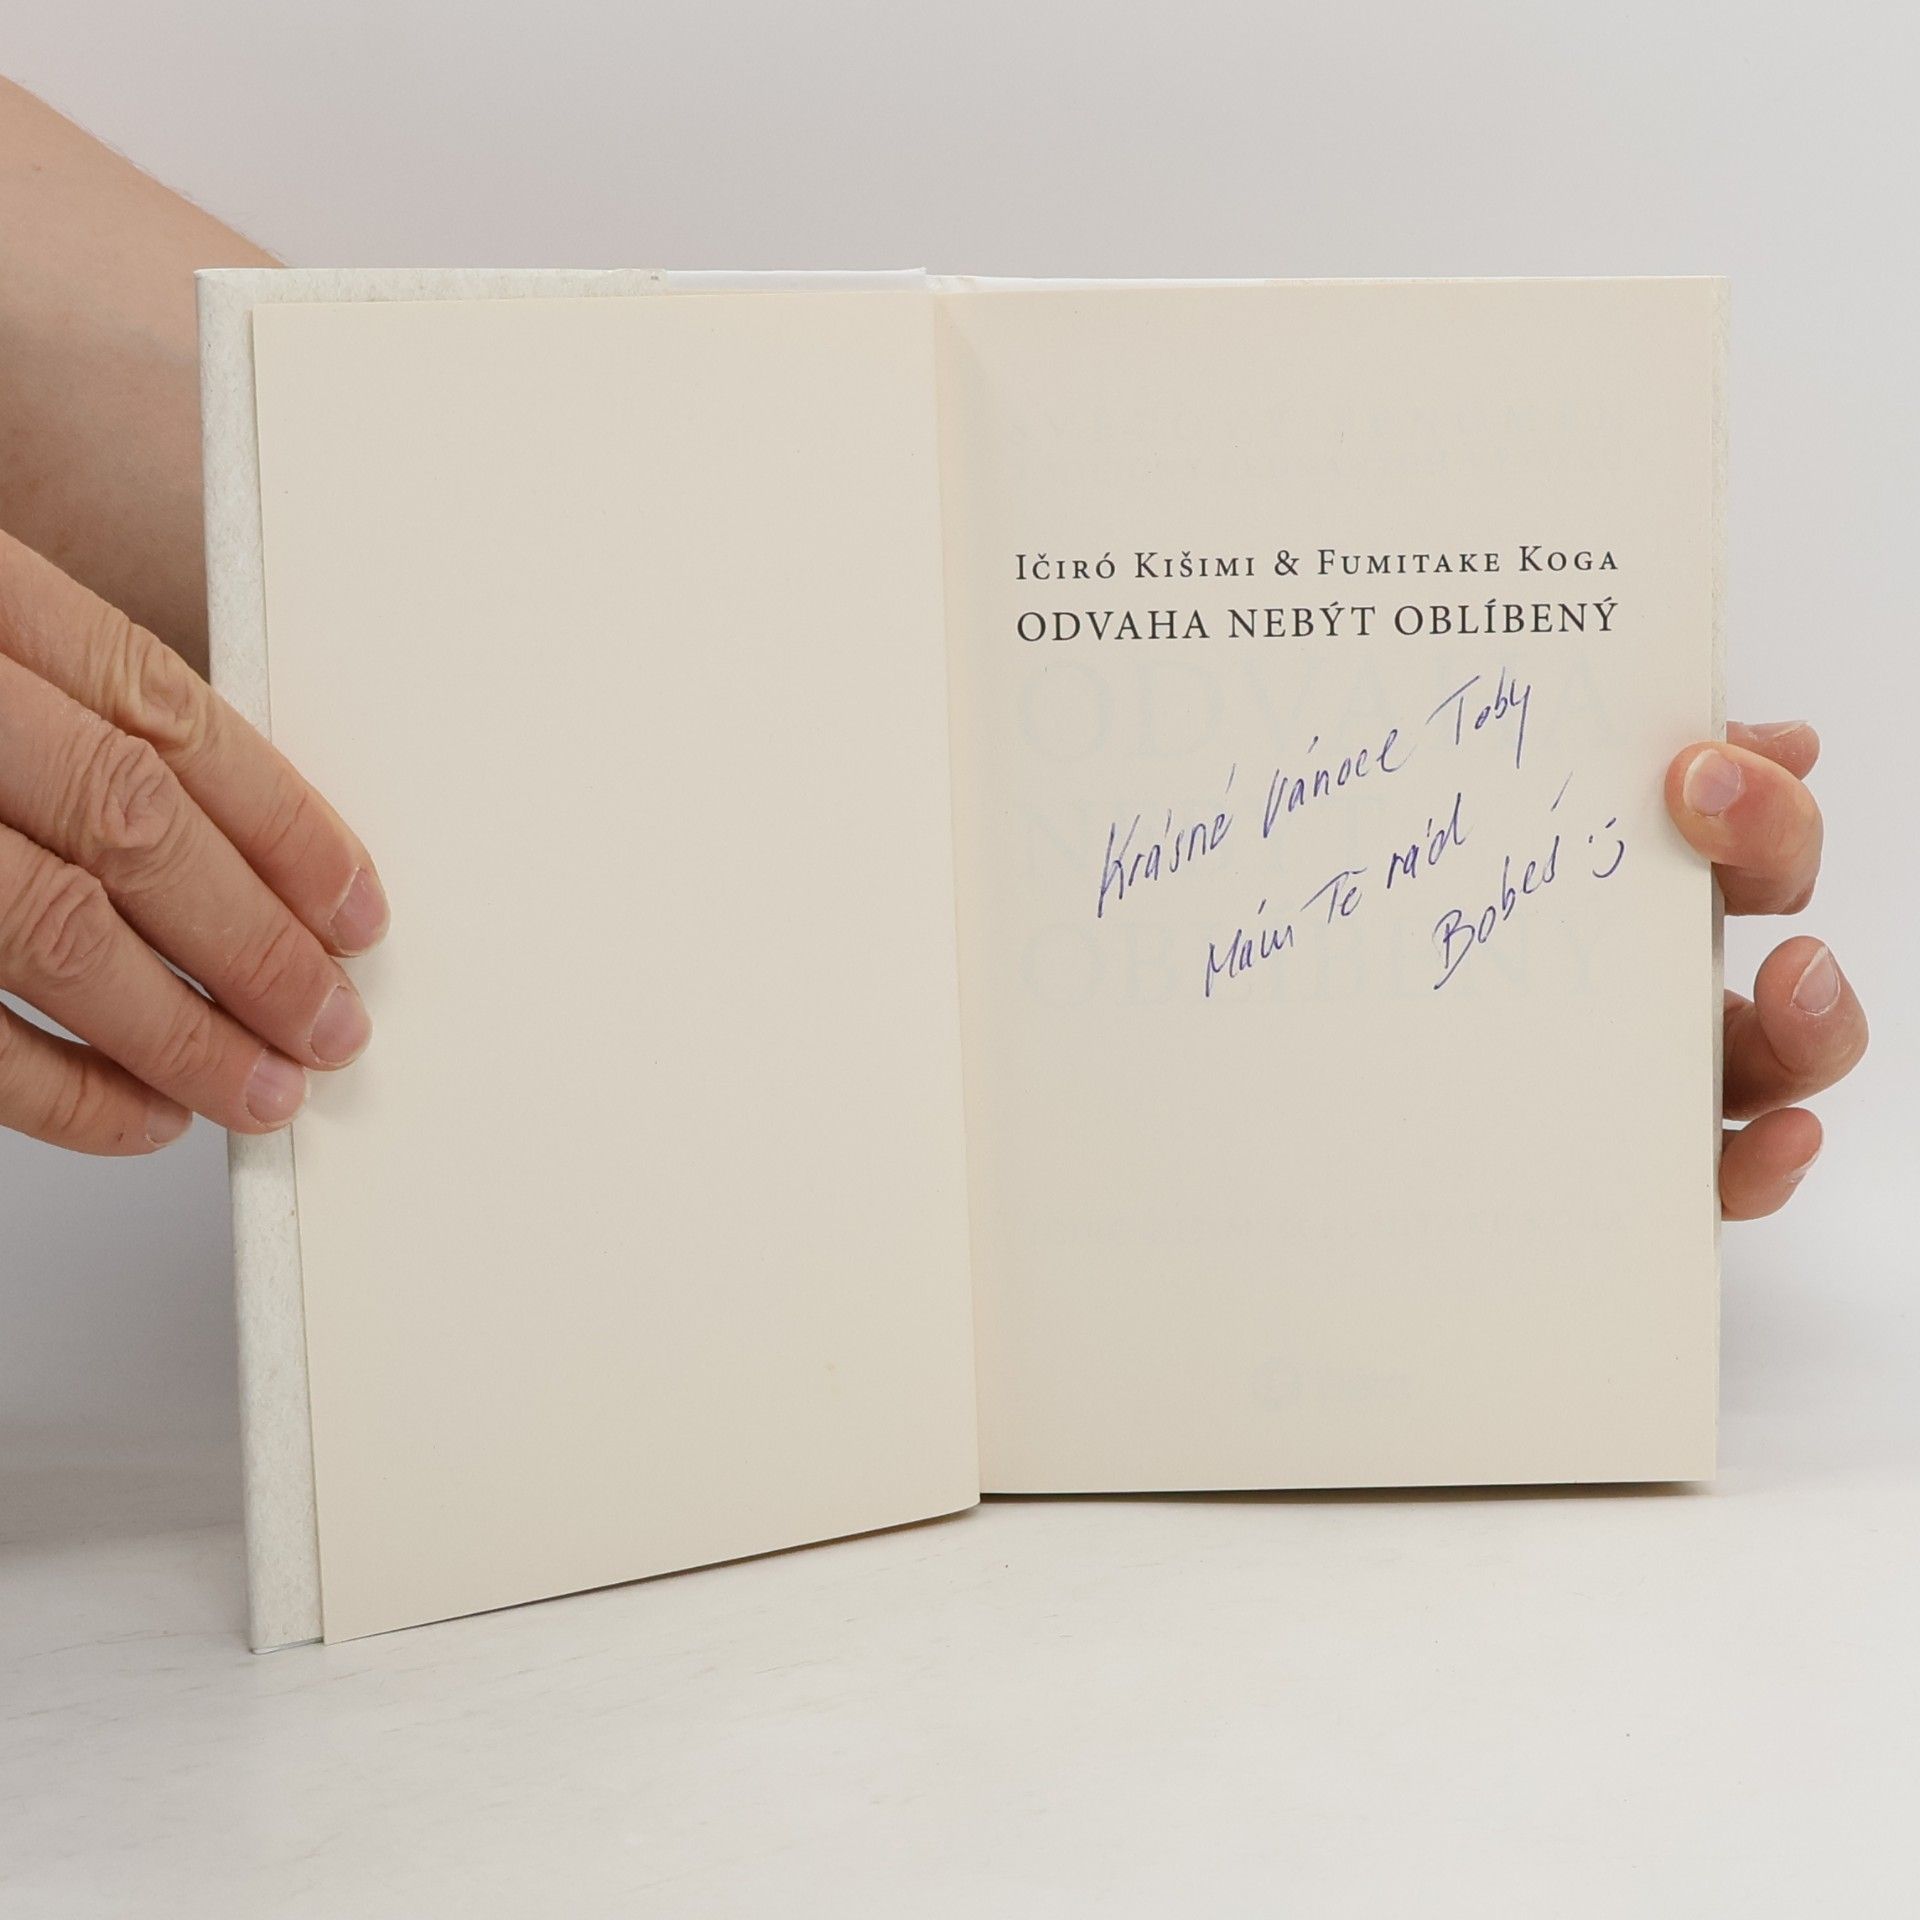 Ičiró Kišimi & Fumitake Koga
ODVAHA NEBÝT OBLÍBENÝ
Krásné Vánoce Toby
Mám Tě rád
Bobeš :)